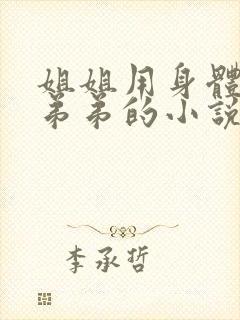 姐姐用身體
弟弟的小說
李承哲